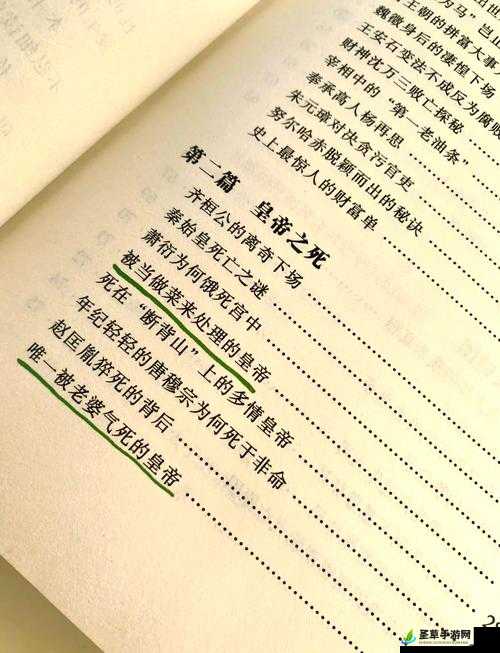 为马”当
王朝的拼富大事
魏徵身后的凄惶下场
王安石变法不成反为腐败
财神沈万三败亡探秘
宰相中的“第一老油条”
奉承高人杨再思
朱元璋对决贪污官吏
努尔哈赤脱颖而出的秘诀
史上最惊人的财富单
第二篇 皇帝之死
齐桓公的离奇下场
秦始皇死亡之谜
萧衍为何饿死宫中
被当做菜来处理的皇帝
死在“断背山”上的多情皇帝
年纪轻轻的唐穆宗为何死于非命
赵匡胤猝死的背后
唯一被老婆气死的皇帝
圣草手游网